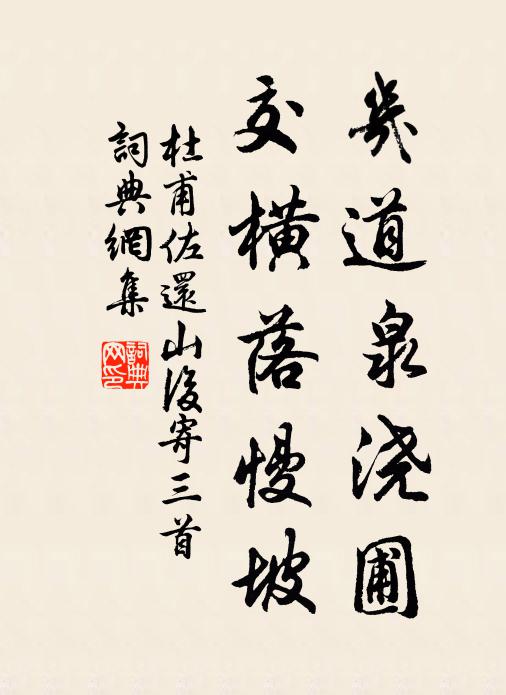 幾道泉浇圃
交橫落慢坡
杜甫佐還山後寄三首
詞典網集
詞典網印